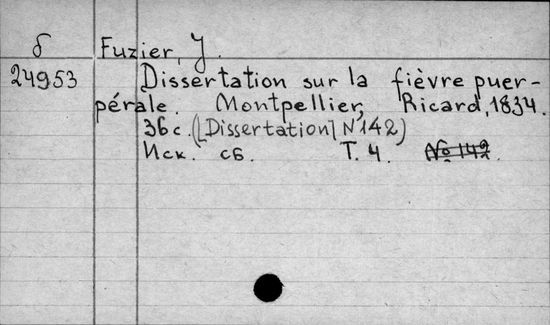 б Fuzier, J.
24953 Dissertation sur la fièvre puer-
pérale. Montpellier, Ricard, 1834.
36 с. ([Dissertation] N°142)
Иск. сб. Т. 4. № 142.